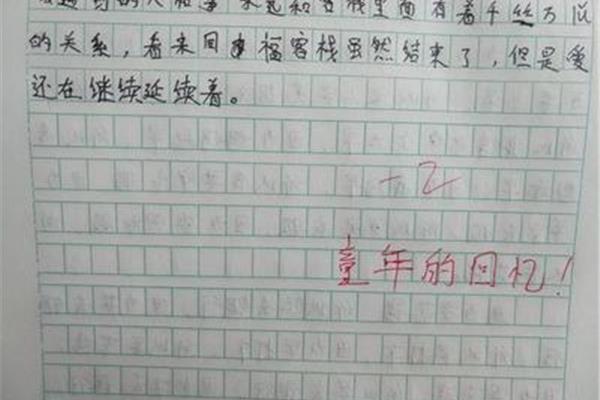 遇到的人和事 永远和客栈里面有着千丝万缕
的关系，看来同福客栈虽然结束了，但是爱
还在继续延续着。
-2
童年的回忆！